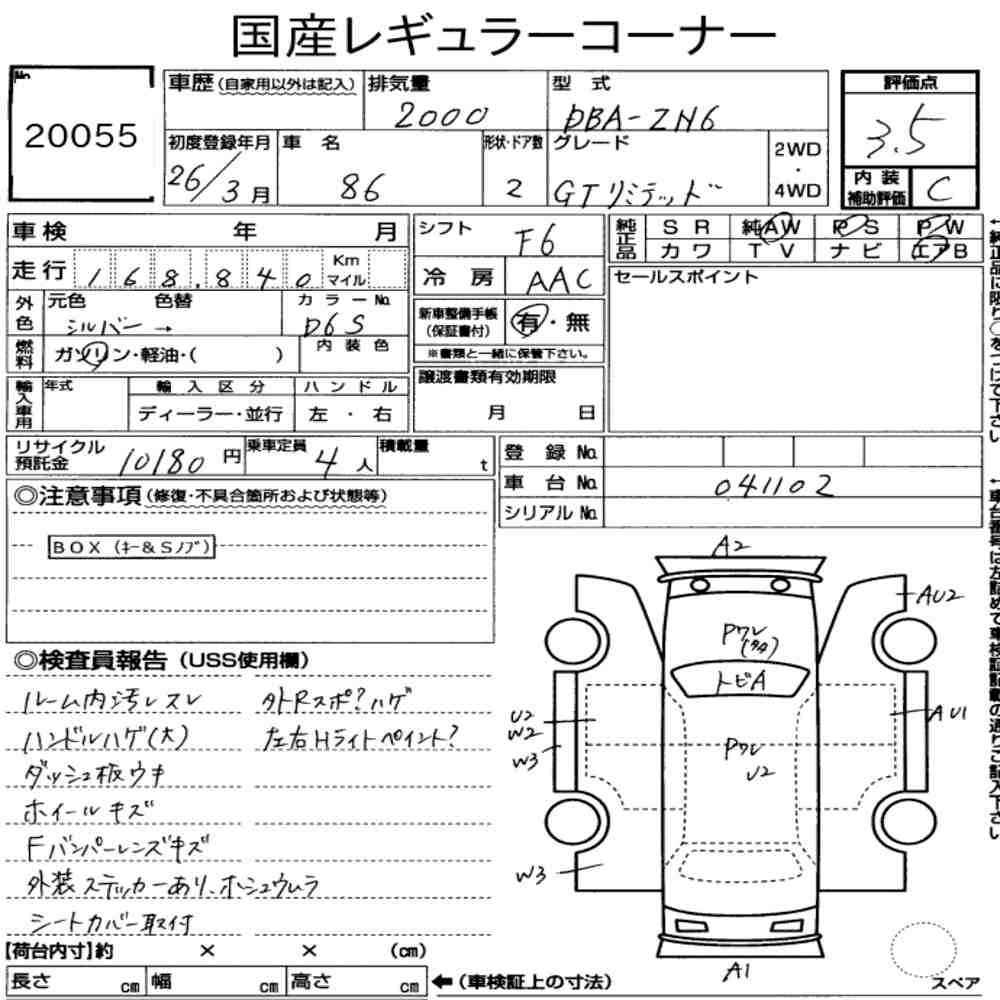 国産レギュラーコーナー
No.
20055
車歴(自家用以外は記入)
排気量
2000
型 式
DBA-ZN6
評価点
3.5
初度登録年月
26/3月
車 名
86
形状・ドア数
2
グレード
GTリミテッド
2WD
・
4WD
内 装
補助評価
C
車検 年 月
走行 168.840 Km
マイル
外色
元色 色替
シルバー →
カラーNo.
D6S
燃料
ガソリン・軽油・( )
内 装 色
輸入車用
年式
輸 入 区 分
ディーラー・並行
ハ ン ド ル
左 ・ 右
シフト
F6
冷 房
AAC
新車整備手帳
(保証書付)
有・無
※書類と一緒に保管下さい。
譲渡書類有効期限
月 日
純正品
S R 純AW P S P W
カ ワ T V ナ ビ エアB
セールスポイント
←純正品に限り○をつけて下さい
リサイクル
預託金
10180円
乗車定員
4人
積載量
t
登 録 No.
車 台 No.
041102
シリアル No.
←車台番号は左詰めで車検証記載の通りご記入下さい
◎注意事項(修復・不具合箇所および状態等)
BOX (キー&Sノブ)
◎検査員報告(USS使用欄)
ルーム内汚レスレ
ハンドルハゲ(大)
ダッシュ板ウキ
ホイールキズ
Fバンパーレンズキズ
外装ステッカーあり、ホシュウムラ
シートカバー取付
外Rスポ?ハゲ
左右Hライトペイント?
A2
AU2
Pワレ
トビA
U2
W2
W3
AU1
Pワレ
U2
W3
A1
【荷台内寸】約 × × (cm)
長さ cm 幅 cm 高さ cm
←(車検証上の寸法)
スペア